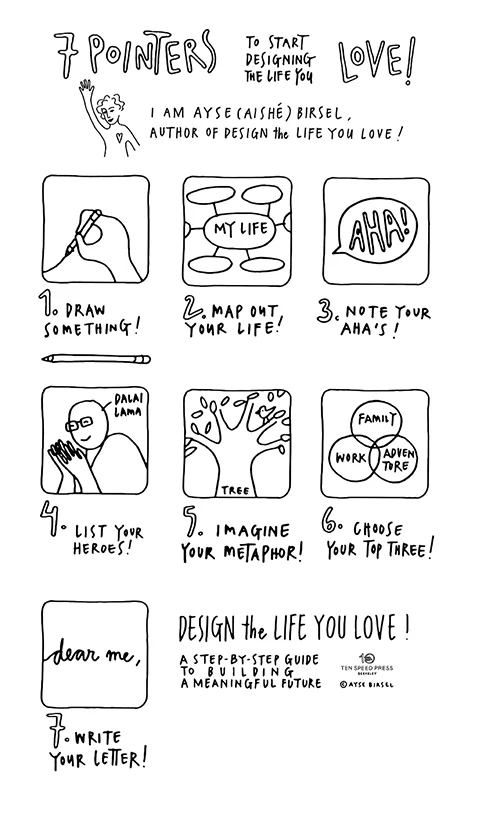 7 POINTERS TO START DESIGNING THE LIFE YOU LOVE!
I AM AYSE (AISHÉ) BIRSEL,
AUTHOR OF DESIGN the LIFE YOU LOVE!
MY LIFE
AHA!
1. DRAW
SOMETHING!
2. MAP OUT
YOUR LIFE!
3. NOTE YOUR
AHA'S!
DALAI
LAMA
TREE
FAMILY
WORK
ADVEN
TURE
4. LIST YOUR
HEROES!
5. IMAGINE
YOUR METAPHOR!
6. CHOOSE
YOUR TOP THREE!
dear me,
7. WRITE
YOUR LETTER!
DESIGN the LIFE YOU LOVE!
A STEP-BY-STEP GUIDE
TO BUILDING
A MEANINGFUL FUTURE
10
TEN SPEED PRESS
BERKELEY
© AYSE BIRSEL